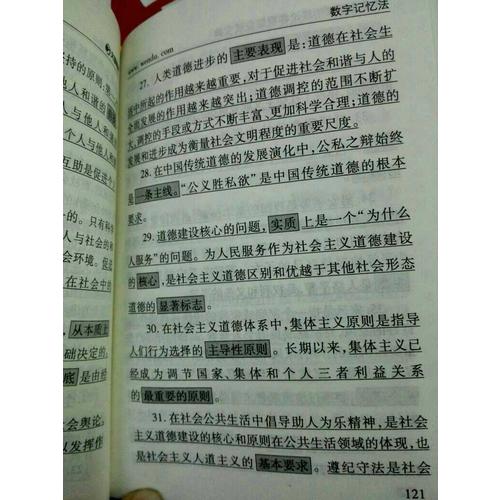 数字记忆法
www.wendu.com
27. 人类道德进步的主要表现是:道德在社会生
活中所起的作用越来越重要,对于促进社会和谐与人的
全面发展的作用越来越突出;道德调控的范围不断扩
大、调控的手段或方式不断丰富、更加科学合理;道德的
发展和进步成为衡量社会文明程度的重要尺度。
28. 在中国传统道德的发展演化中,公私之辩始终
是一条主线。“公义胜私欲”是中国传统道德的根本
要求。
29. 道德建设核心的问题,实质上是一个“为什么
人服务”的问题。为人民服务作为社会主义道德建设
的核心,是社会主义道德区别和优越于其他社会形态
道德的显著标志。
30. 在社会主义道德体系中,集体主义原则是指导
人们行为选择的主导性原则。长期以来,集体主义已
经成为调节国家、集体和个人三者利益关系
的最重要的原则。
31. 在社会公共生活中倡导助人为乐精神,是社会
主义道德建设的核心和原则在公共生活领域的体现,也
是社会主义人道主义的基本要求。遵纪守法是社会
121
持的原则:第二
他人和谐的
人与他人和
个人与他人
互助是促进个
的。只有科
人与社会的和
会环境。促
在社会中的
从本质上
础决定的。
底是由经
会舆论,
以发挥作